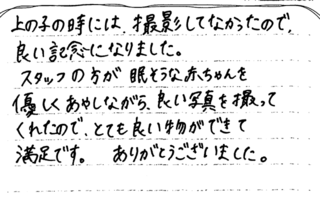 上の子の時には、撮影してなかったので、
良い記念になりました。
スタッフの方が眠そうな赤ちゃんを
優しくあやしながら、良い写真を撮って
くれたので、とても良い物ができて
満足です。 ありがとうございました。